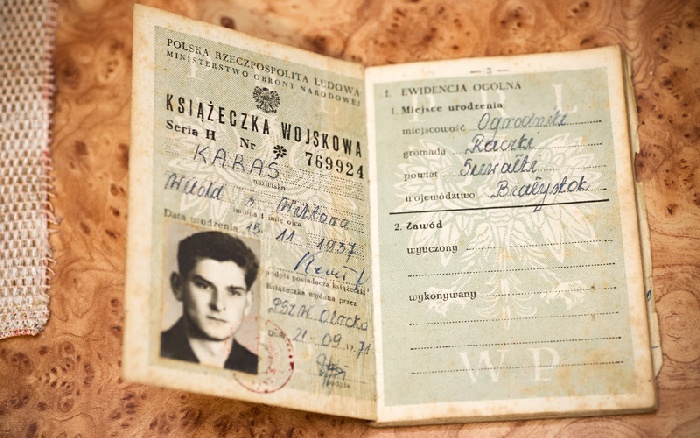 POLSKA RZECZPOSPOLITA LUDOWA
MINISTERSTWO OBRONY NARODOWEJ
KSIĄŻECZKA WOJSKOWA
Seria H Nr * 769924
KARAŚ
nazwisko
Witold s. Wiktora
imię i imię ojca
Data urodzenia 15 11 1937
podpis posiadacza książeczki
Książeczka wydana przez
Olecko
dnia 21.09.1971
— 3 —
1. EWIDENCJA OGÓLNA
1. Miejsce urodzenia
miejscowość Ogrodniki
gromada Raczki
powiat Suwałki
województwo Białystok
2. Zawód
wyuczony
wykonywany
W P